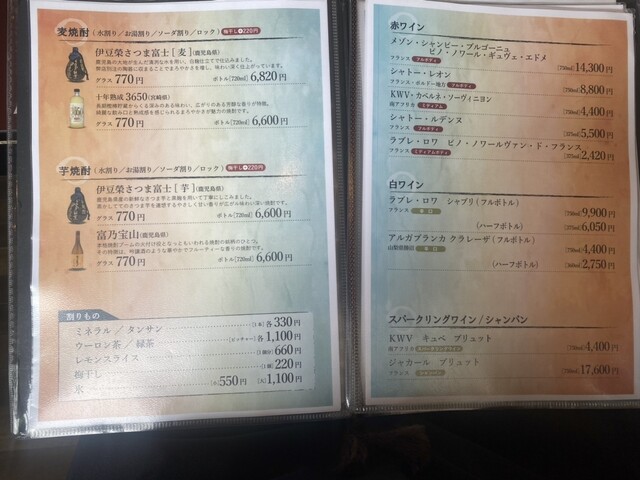 麦焼酎(水割り/お湯割り/ソーダ割り/ロック) 梅干し+220円
伊豆榮さつま富士[麦](鹿児島県)
グラス 770円 ボトル[720ml] 6,820円
十年熟成 3650(宮崎県)
グラス 770円 ボトル[720ml] 6,600円
芋焼酎(水割り/お湯割り/ソーダ割り/ロック) 梅干し+220円
伊豆榮さつま富士[芋](鹿児島県)
グラス 770円 ボトル[720ml] 6,600円
富乃宝山(鹿児島県)
本格焼酎ブームの火付け役となったともいわれる焼酎の銘柄のひとつ。
その特徴は、吟醸酒のような華やかでフルーティーな香りの焼酎です。
グラス 770円 ボトル[720ml] 6,600円
割りもの
ミネラル / タンサン [1本] 各330円
ウーロン茶 / 緑茶 [ピッチャー] 各1,100円
レモンスライス [1個分] 660円
梅干し [1個] 220円
氷 [小] 550円 [大] 1,100円
赤ワイン
メゾン・シャンピー・ブルゴーニュ
ピノ・ノワール・ギュヴェ・エドメ
フランス フルボディ [750ml] 14,300円
シャトー・レオン
フランス・ボルドー地方 フルボディ [750ml] 8,800円
KWV・カベルネ・ソーヴィニヨン
南アフリカ ミディアム [750ml] 4,400円
シャトー・ルデンヌ
フランス フルボディ [375ml] 5,500円
ラブレ・ロワ ピノ・ノワールヴァン・ド・フランス
フランス ミディアムボディ 2,420円
白ワイン
ラブレ・ロワ シャブリ(フルボトル)
フランス 辛口 [750ml] 9,900円
(ハーフボトル) [375ml] 6,050円
アルガブランカ クラレーザ(フルボトル)
山梨県勝沼 辛口 [750ml] 4,400円
(ハーフボトル) [360ml] 2,750円
スパークリングワイン/シャンパン
KWV キュベ ブリュット
南アフリカ スパークリングワイン [750ml] 4,400円
ジャカール ブリュット
フランス シャンパン [750ml] 17,600円